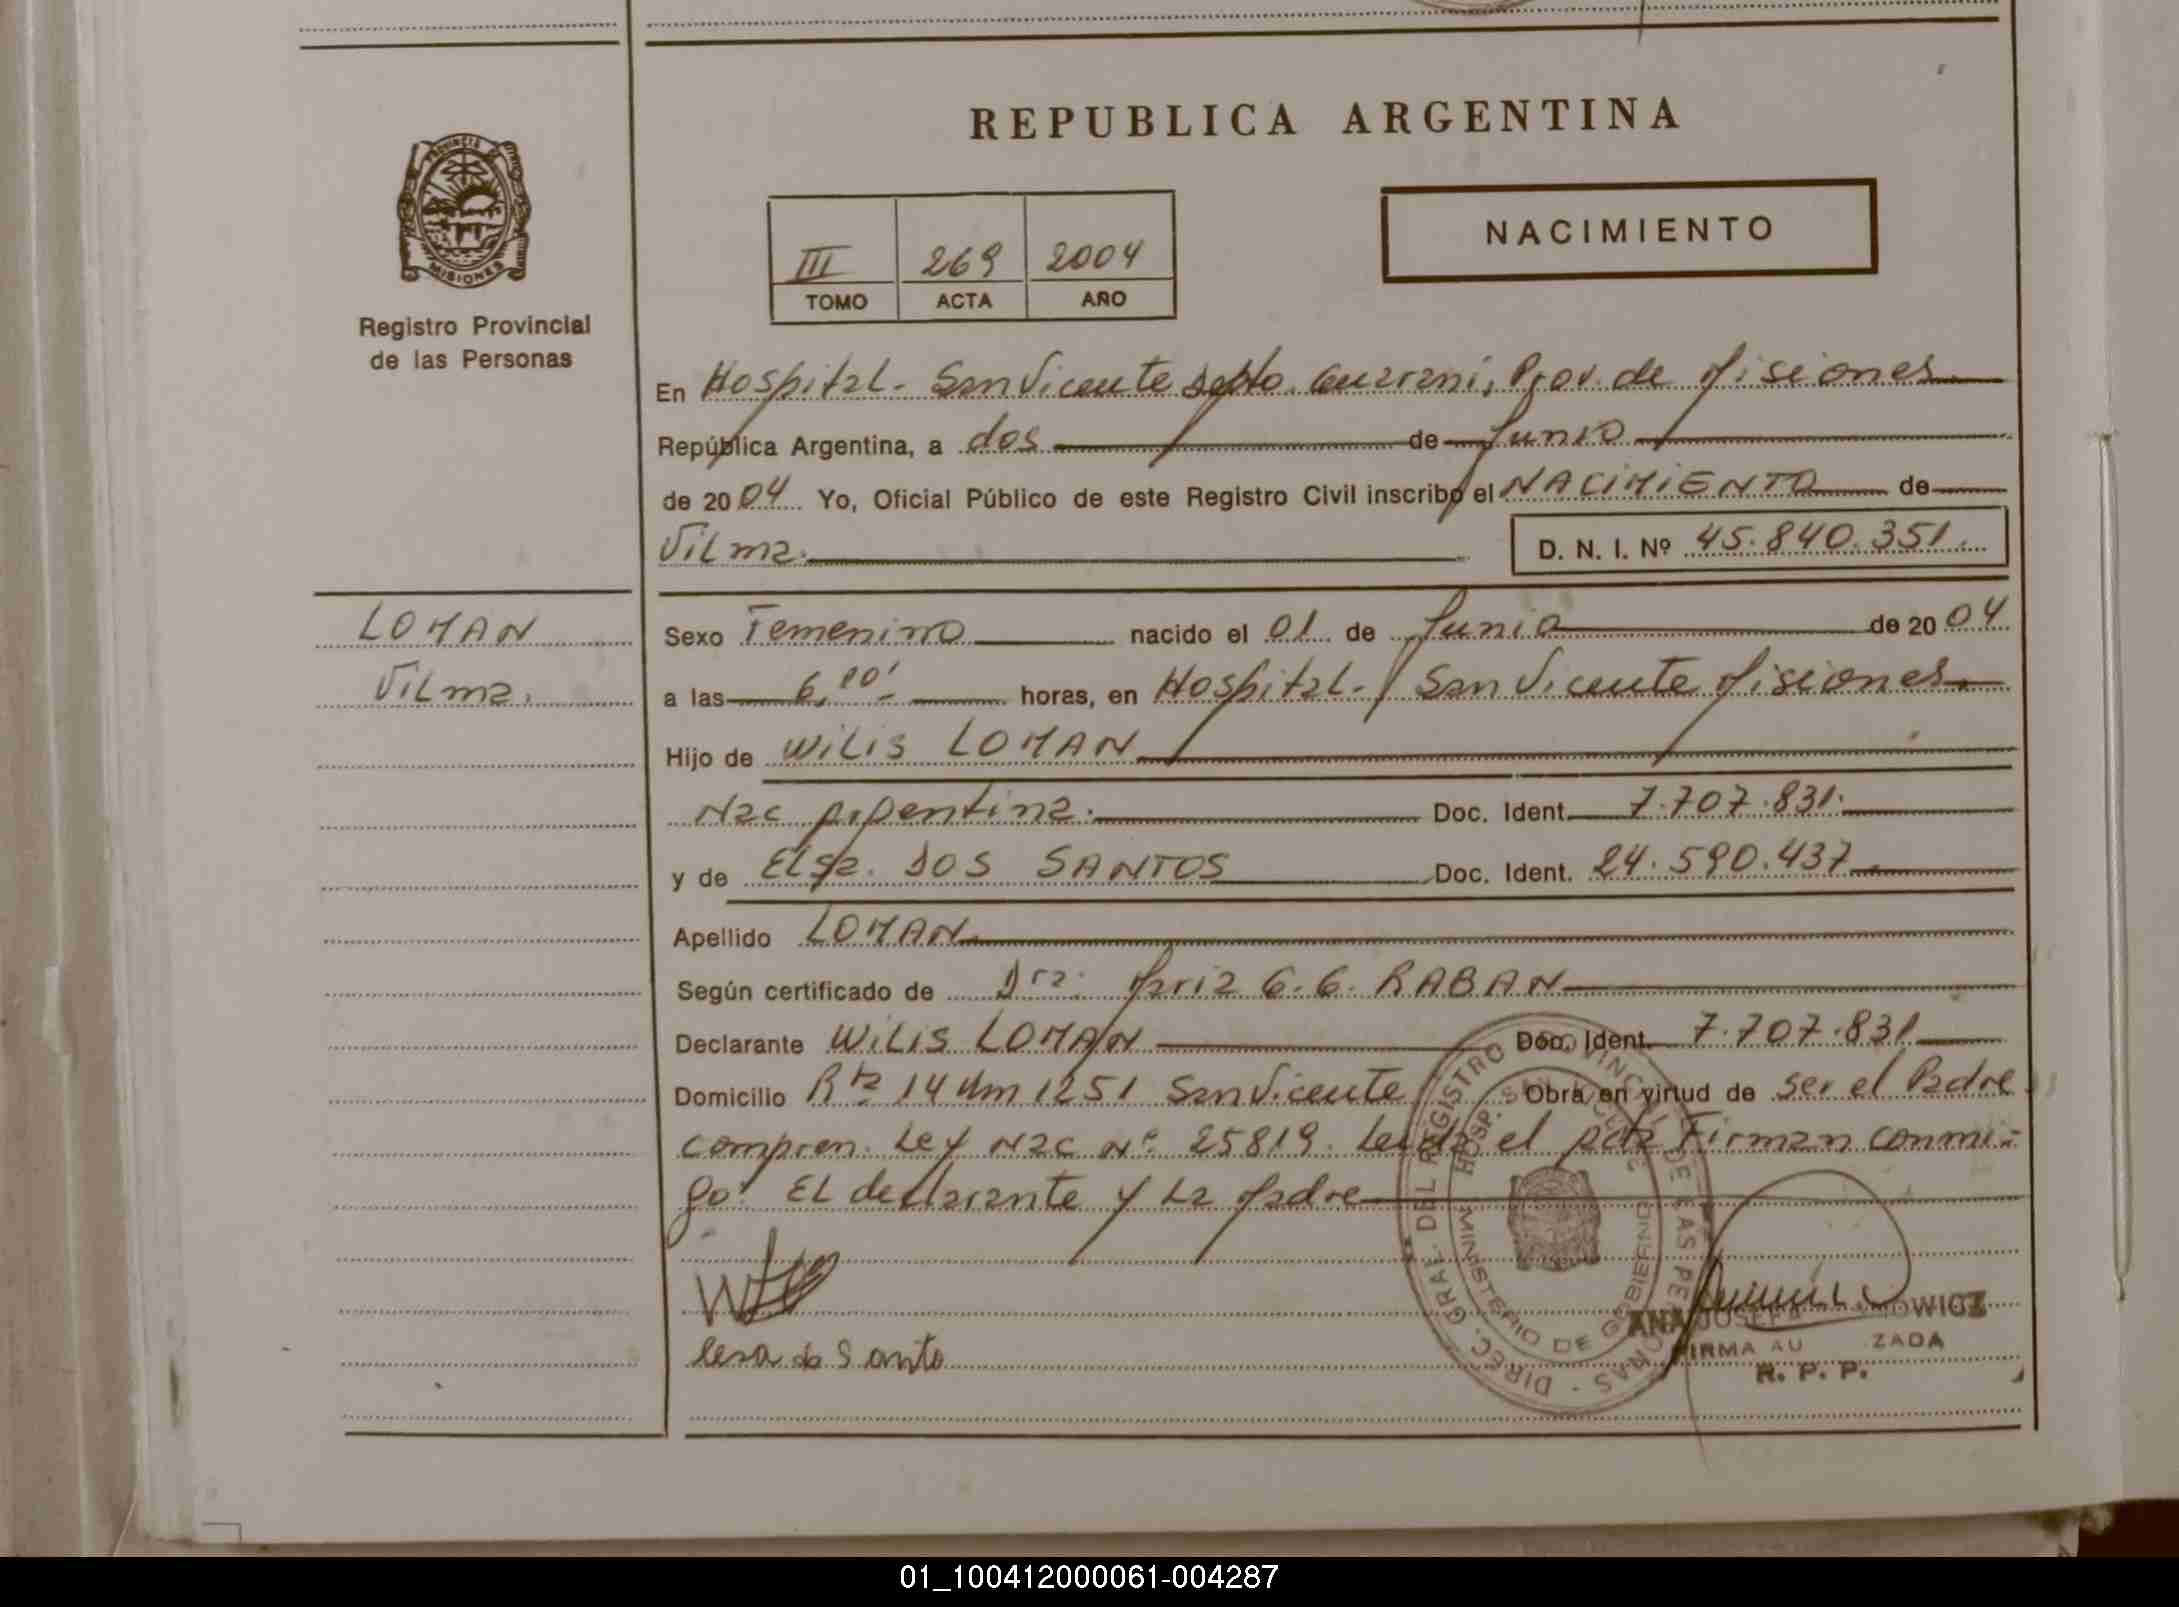 REPUBLICA ARGENTINA
PROVINCIA DE
MISIONES
Registro Provincial
de las Personas
III 269 2004
TOMO ACTA AÑO
NACIMIENTO
En Hospital - San Vicente Depto. Guarani, Prov. de Misiones
República Argentina, a dos de Junio
de 20 04 Yo, Oficial Público de este Registro Civil inscribo el NACIMIENTO de
Vilma. D. N. I. Nº 45.840.351.
LOMAN
Vilma.
Sexo Femenino nacido el 01 de Junio de 20 04
a las horas, en Hospital - San Vicente Misiones
Hijo de WILIS LOMAN
Nac Argentina. Doc. Ident. 7.707.831.
y de Elsa. DOS SANTOS Doc. Ident. 24.590.437
Apellido LOMAN
Según certificado de Dra. Maria G. G. RABAN
Declarante WILIS LOMAN Doc. Ident. 7.707.831
Domicilio Rta 14 Km 1251 San Vicente Obra en virtud de ser el Padre
compren. Ley Nac Nº 25819. Leida el acta Firman conmi-
go: El declarante y La Madre
DIREC. GRAL. DEL REGISTRO PROVINCIAL DE LAS PERSONAS
HOSP. SAN VICENTE
MINISTERIO DE GOBIERNO
ANA JOSEFA
FIRMA AUTORIZADA
R. P. P.
01_100412000061-004287